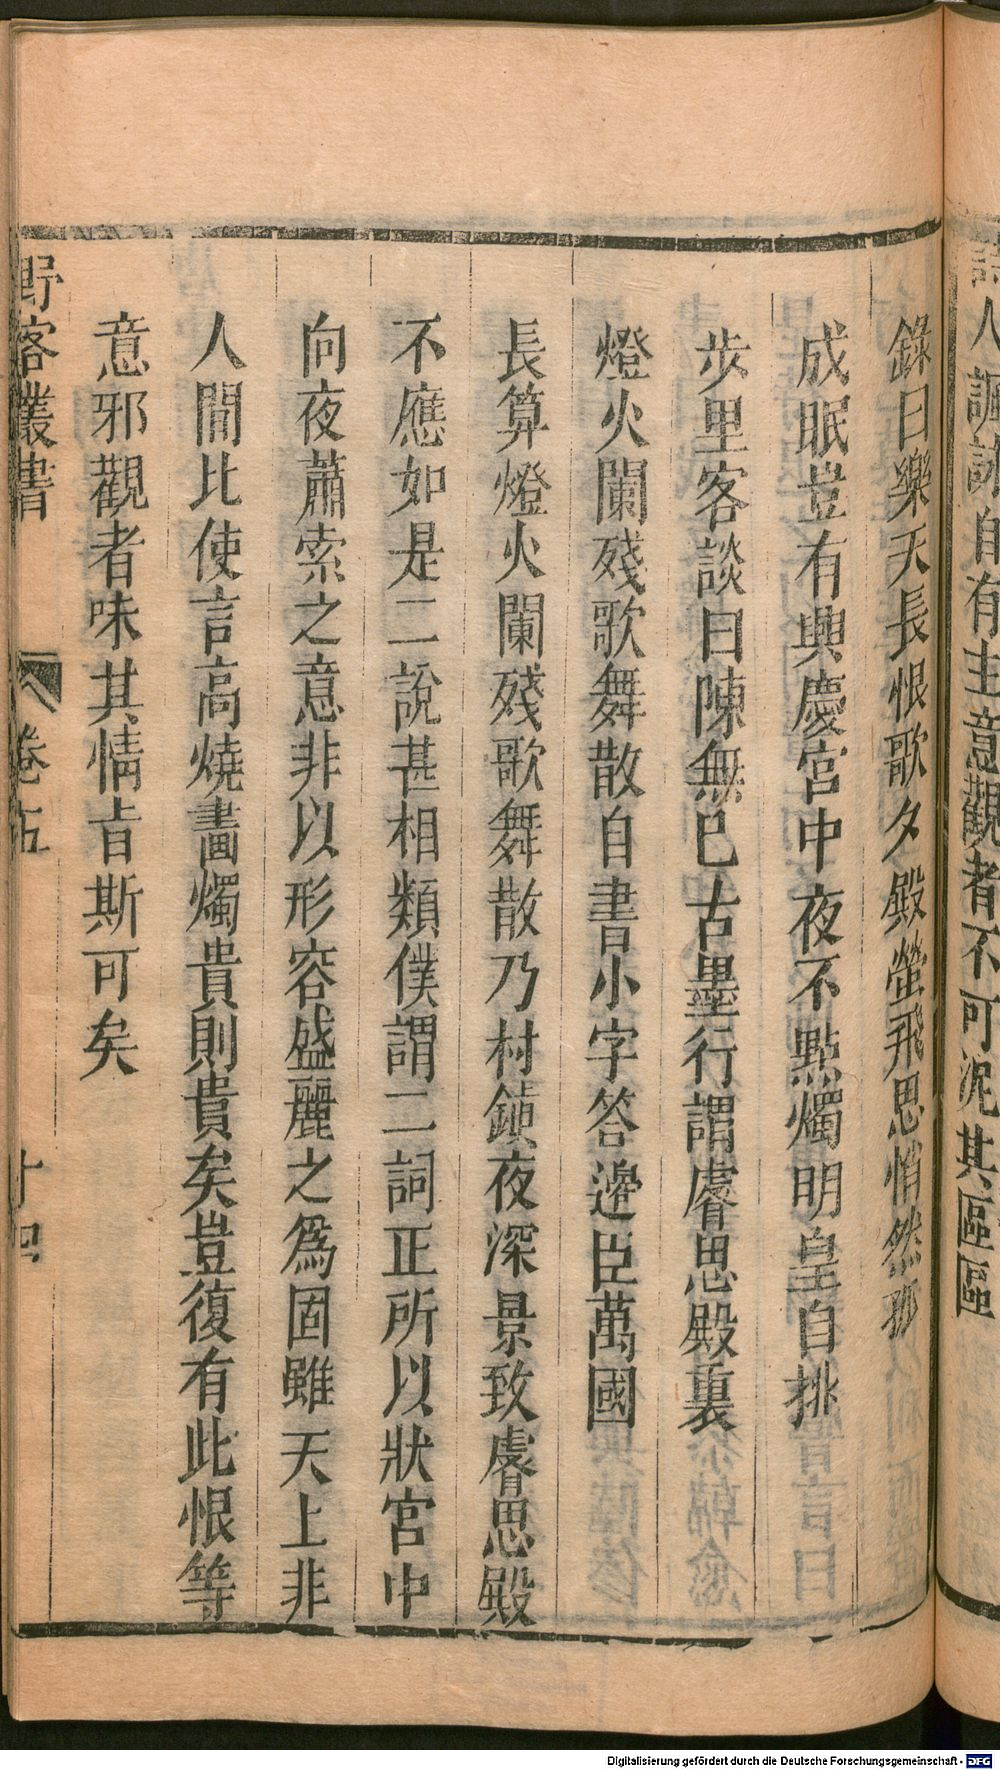 詩人諷詠自有主意觀者不可泥其區區
錄曰樂天長恨歌夕殿螢飛思悄然孤
成眠豈有興慶宮中夜不點燭明皇自挑
步里客談曰陳無已古墨行謂睿思殿裏
燈火闌殘歌舞散自書小字答邊臣萬國
長算燈火闌殘歌舞散乃村鎮夜深景致睿思殿
不應如是二說甚相類僕謂二詞正所以狀宮中
向夜蕭索之意非以形容盛麗之為固雖天上非
人間比使言高燒畫燭貴則貴矣豈復有此恨等
意邪觀者味其情旨斯可矣
野客叢書 卷五 十四
Digitalisierung gefördert durch die Deutsche Forschungsgemeinschaft - DFG